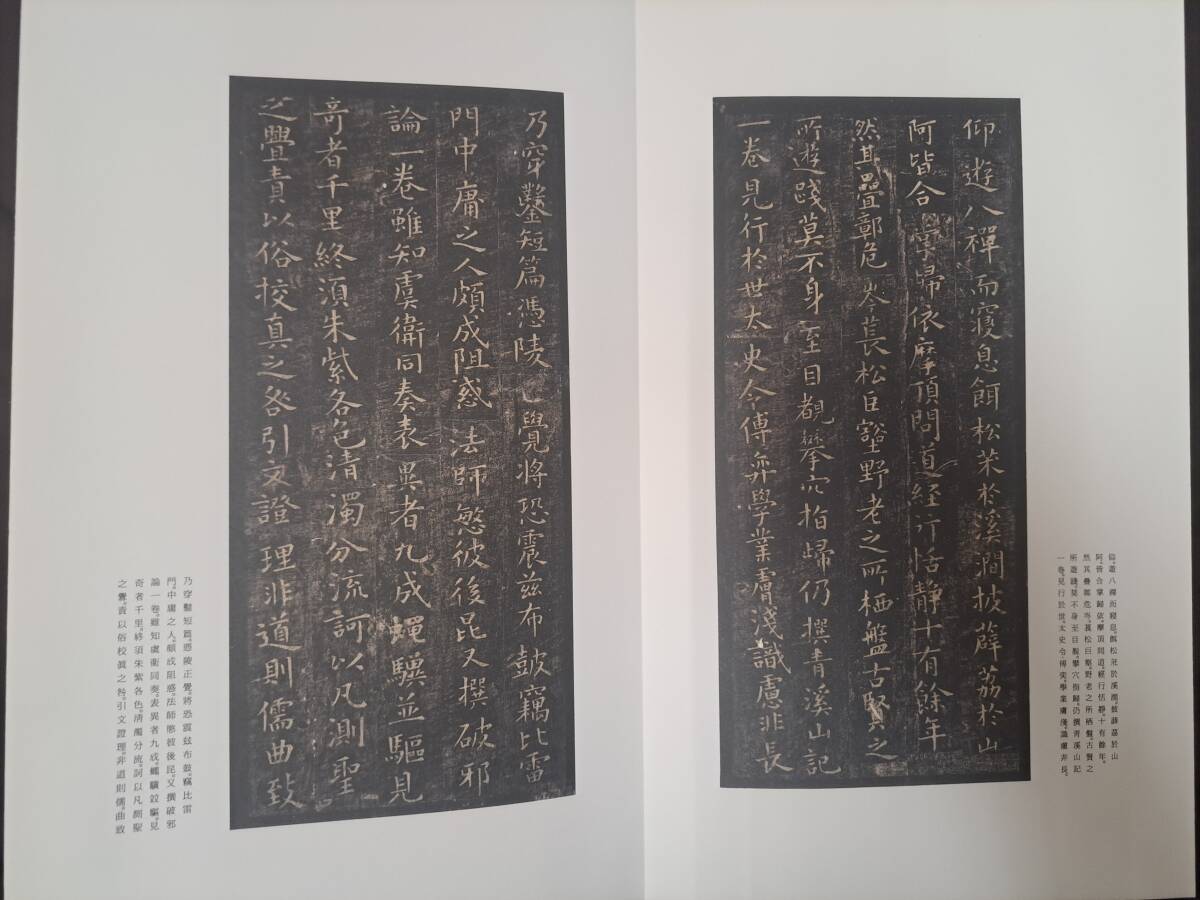 仰遊八禪而寢息餌松朮於溪澗披薜荔於山
阿皆合掌歸依摩頂問道經行恬靜十有餘年
然其疊鄣危岑萇松巨壑野老之所栖盤古賢之
所遊踐莫不身至目覩攀穴指歸仍撰青溪山記
一卷見行於世太史令傅弈學業膚淺識慮非長
仰遊八禪而寢息。餌松朮於溪澗。披薜荔於山
阿。皆合掌歸依。摩頂問道。經行恬靜。十有餘年。
然其疊鄣危岑。萇松巨壑。野老之所栖盤。古賢之
所遊踐。莫不身至目覩。攀穴指歸。仍撰青溪山記
一卷。見行於世。太史令傅奕。學業膚淺。識慮非長。
乃穿鑿短篇憑陵正覺將恐震茲布鼓竊比雷
門中庸之人頗成阻惑法師慜彼後昆又撰破邪
論一卷雖知虞衛同奏表異者九成蠅驥並驅見
奇者千里終須朱紫各色清濁分流訶以凡測聖
之舋責以俗挍真之咎引文證理非道則儒曲致
乃穿鑿短篇。憑陵正覺。將恐震茲布鼓。竊比雷
門。中庸之人。頗成阻惑。法師慜彼後昆。又撰破邪
論一卷。雖知虞衛同奏。表異者九成。蠅驥竝驅。見
奇者千里。終須朱紫各色。清濁分流。訶以凡測聖
之舋。責以俗校眞之咎。引文證理。非道則儒。曲致